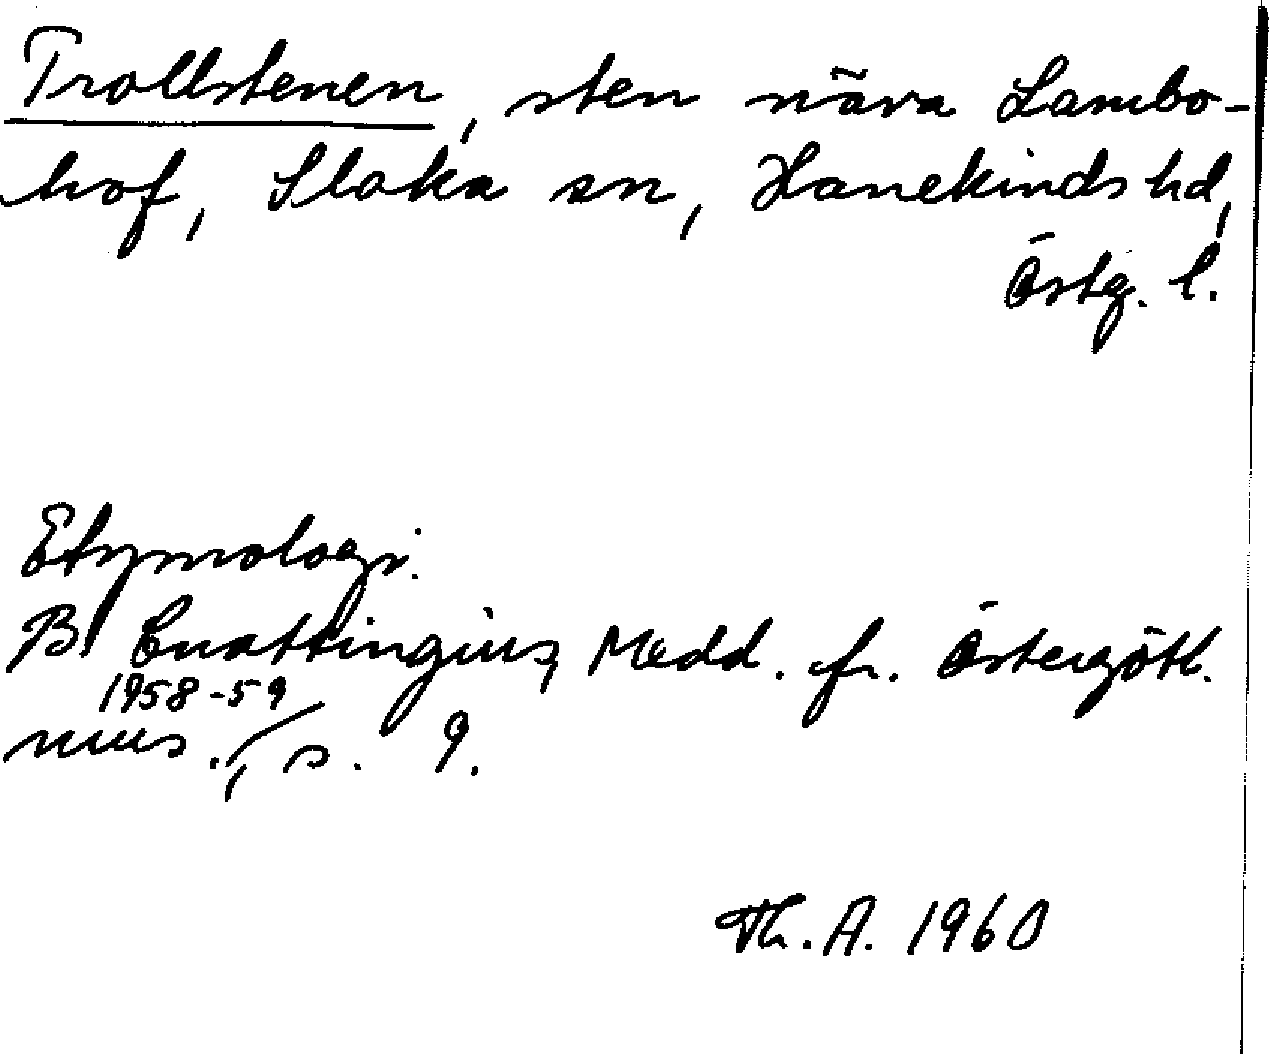 Trollstenen, sten nära Lambo-
hof, Slaka sn, Hanekinds hd,
Östg. l.
Etymologi.
B. Cnattingius, Medd. fr. Östergötl.
1958-59
mus., s. 9.
Th. A. 1960